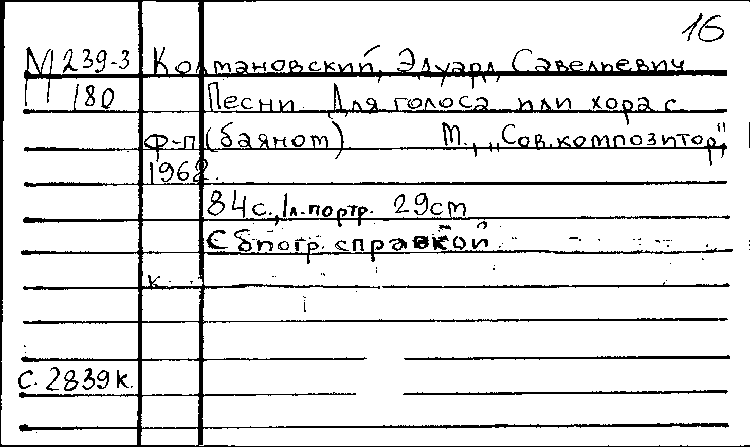 16
М 239-3 Колмановский, Эдуард Савельевич
180 Песни. Для голоса или хора с
ф-п (баяном) М., „Сов. композитор",
1962.
84 с., 1 л. портр. 29 cm
С биогр. справкой
к
с. 2839 к.